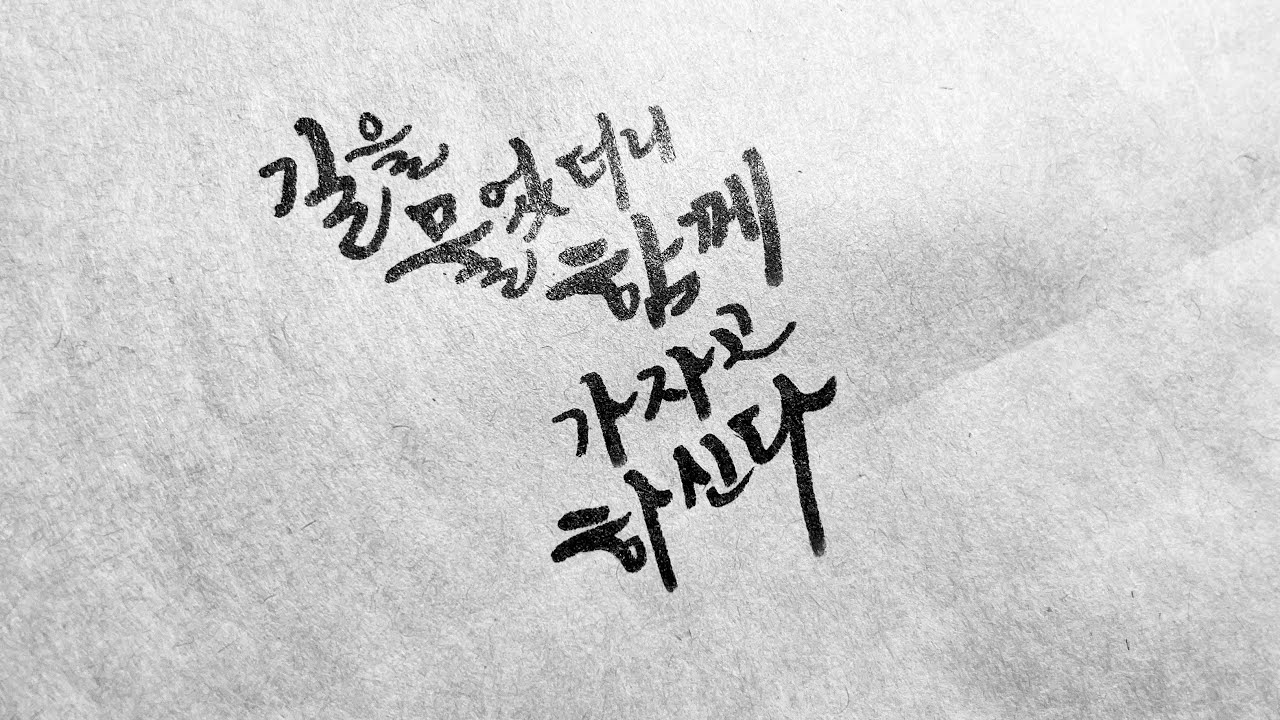 길을 물었더니
함께
가자고
하신다